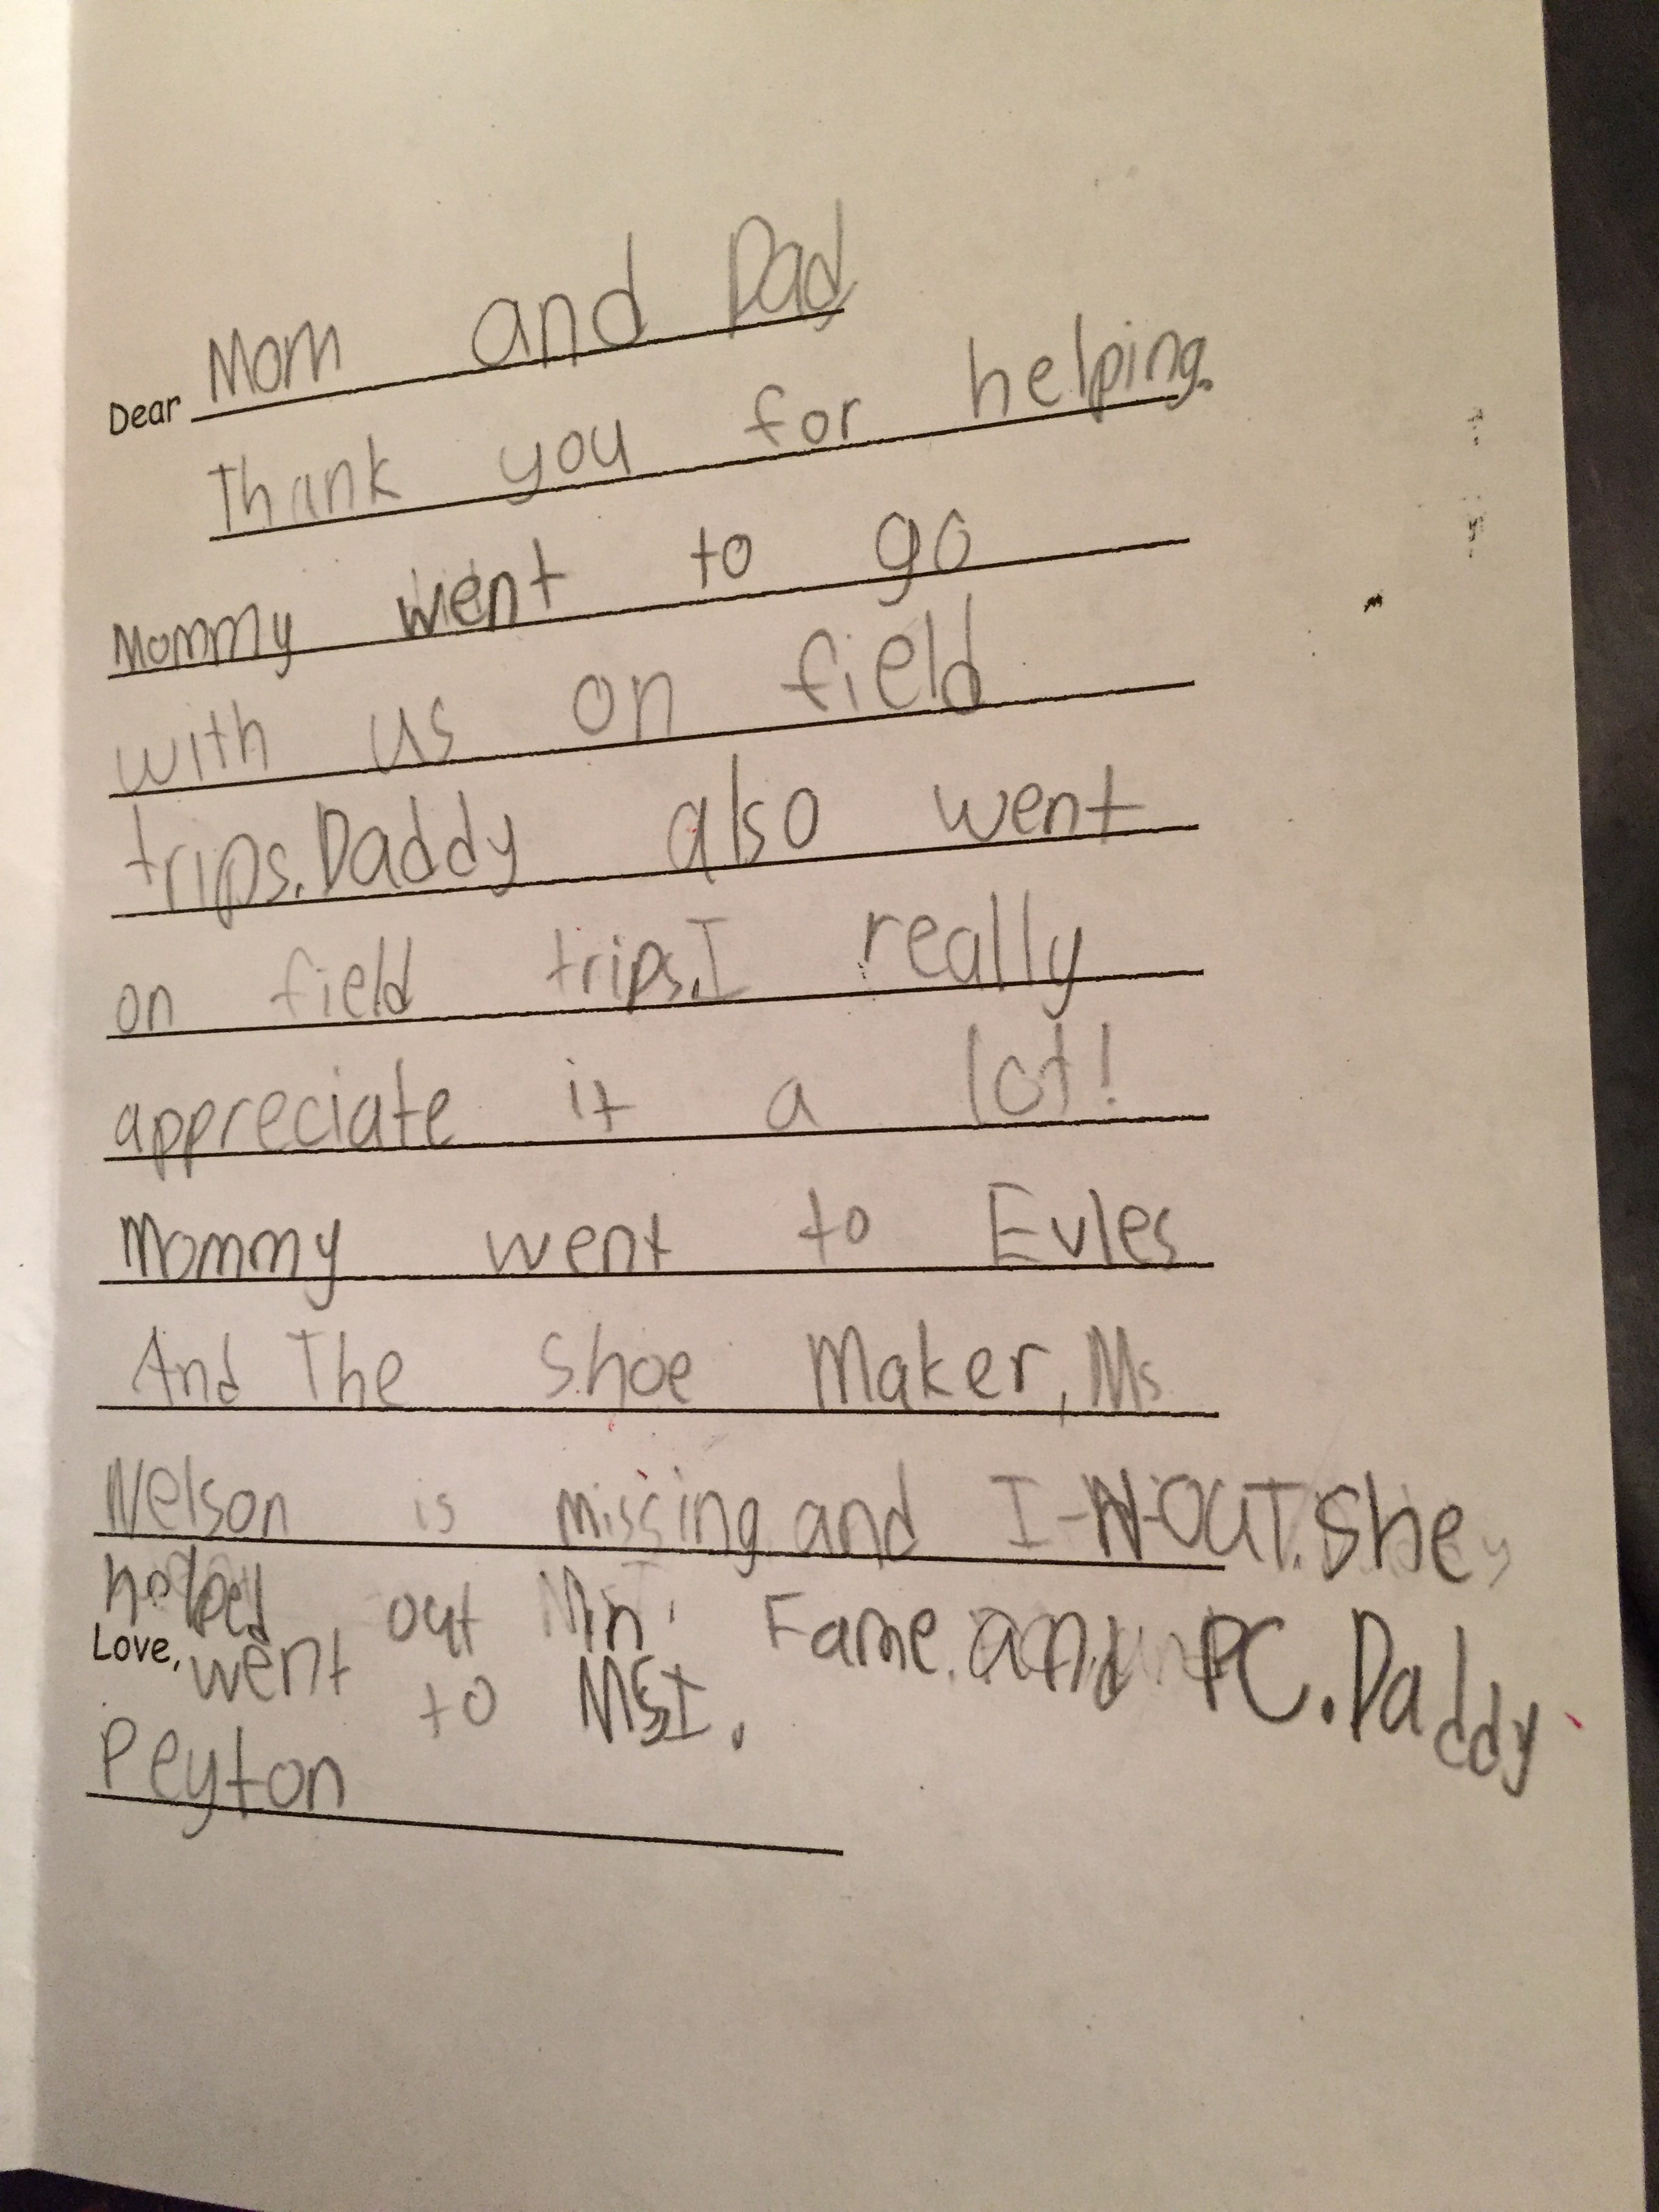 Dear Mom and Dad
Thank you for helping.
Mommy went to go
with us on field
trips. Daddy also went
on field trips. I really
appreciate it a lot!
Mommy went to Evles
And The Shoe Maker, Ms
Nelson is missing and I-N-OUT. She
helped out in Fame and PC. Daddy
went to MSI.
Love,
Peyton